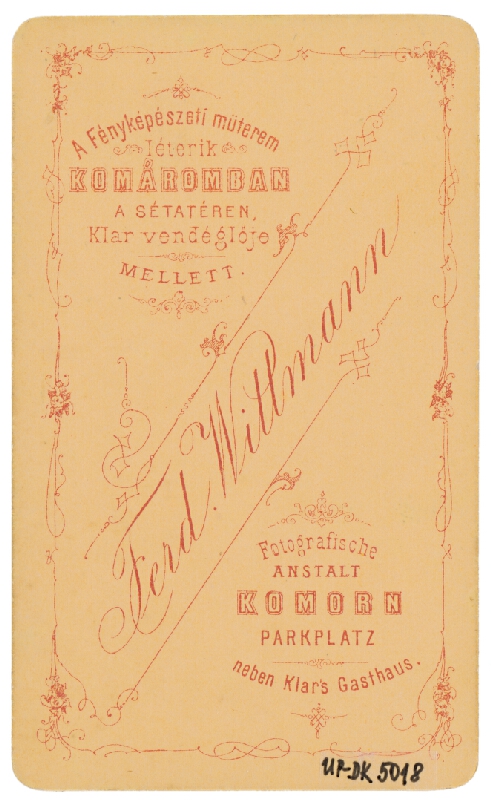 A Fényképészeti műterem
létezik
KOMÁROMBAN
A SÉTATÉREN,
Klar vendéglője
MELLETT.
Ferd. Willmann
Fotografische
ANSTALT
KOMORN
PARKPLATZ
neben Klar's Gasthaus.
UP-DK 5018